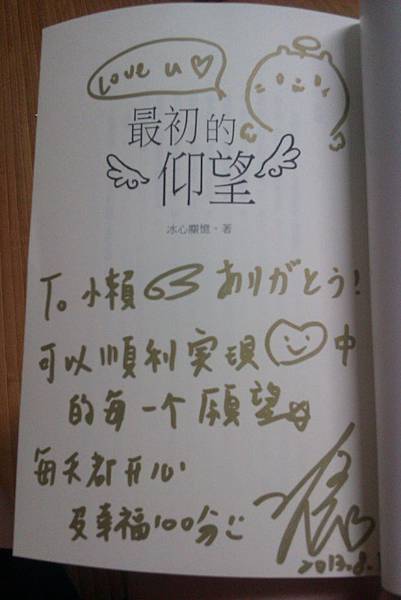 Love u ♡
最初的
仰望
冰心龘憶・著
To 小賴 ありがとう!
可以順利实現♡中
的每一个願望
每天都开心
及幸福100分
2013.8.